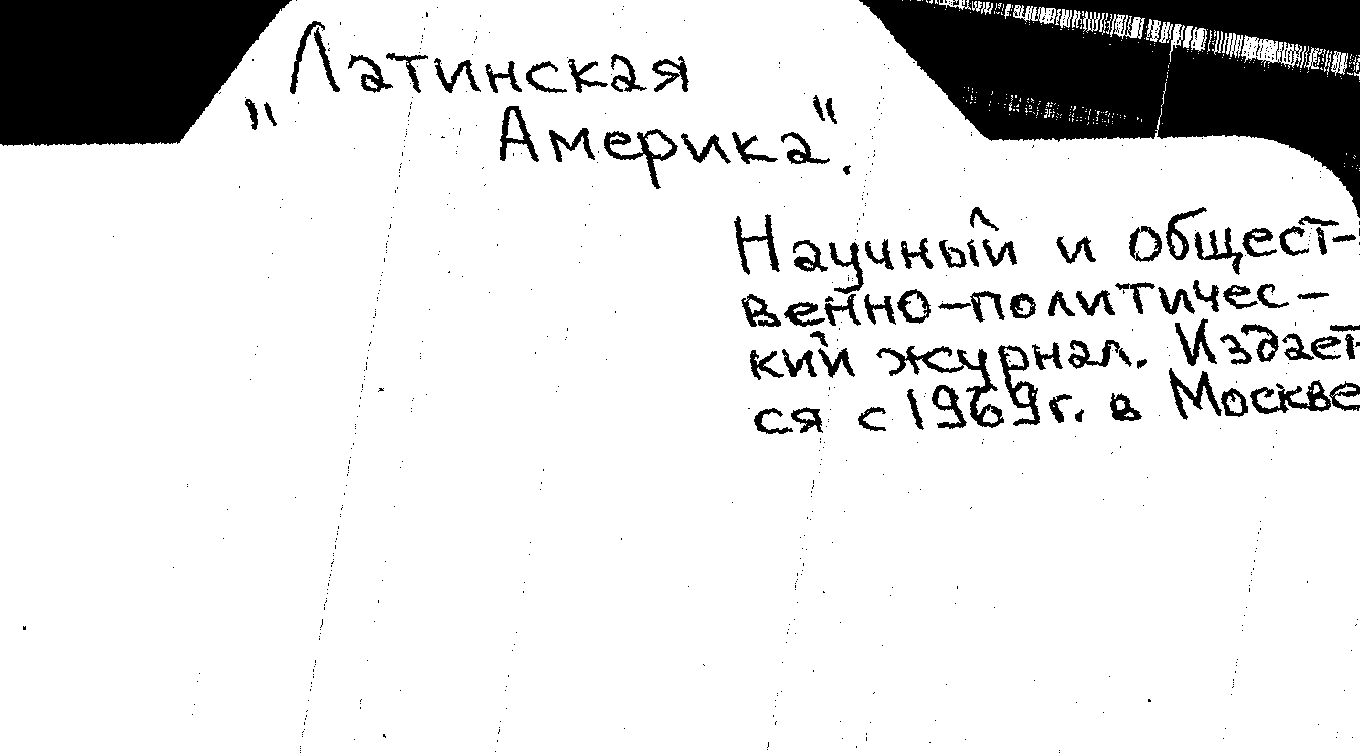 Латинская
"Америка".
Научный и общест-
венно-политичес-
кий журнал. Издает
ся с 1969г. в Москве